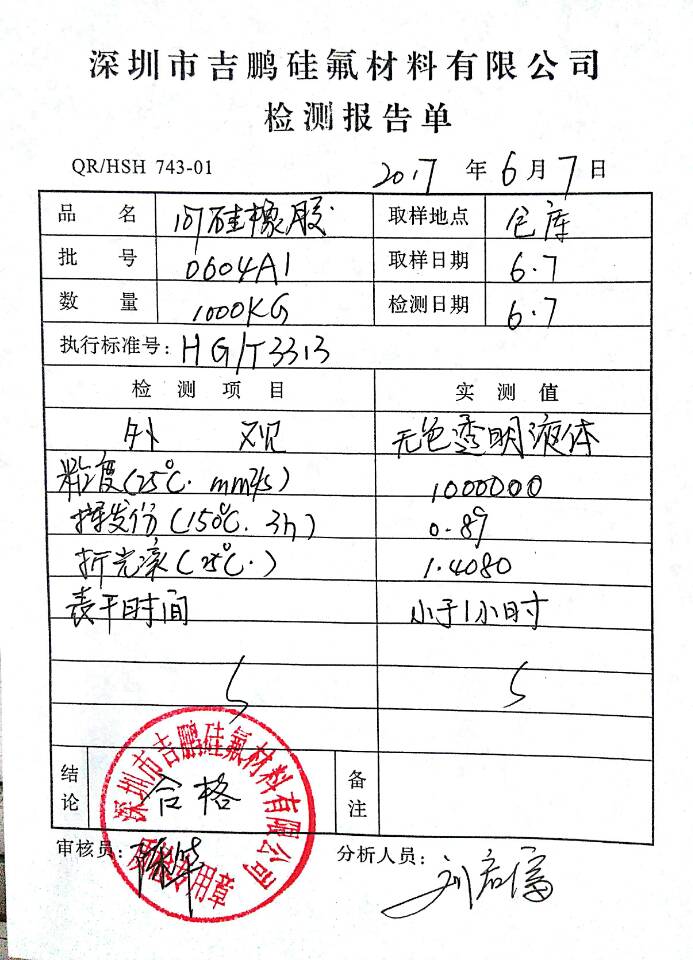 深圳市吉鹏硅氟材料有限公司
检测报告单
QR/HSH 743-01 2017 年 6 月 7 日
品名 107硅橡胶 取样地点 仓库
批号 0604A1 取样日期 6.7
数量 1000KG 检测日期 6.7
执行标准号: HG/T3313
检测项目 实测值
外观 无色透明液体
粘度(25℃. mm²/s) 1000000
挥发份(150℃. 3h) 0.89
折光率(25℃.) 1.4080
表干时间 小于1小时
结论 合格 备注
深圳市吉鹏硅氟材料有限公司
质检专用章
审核员: 分析人员: